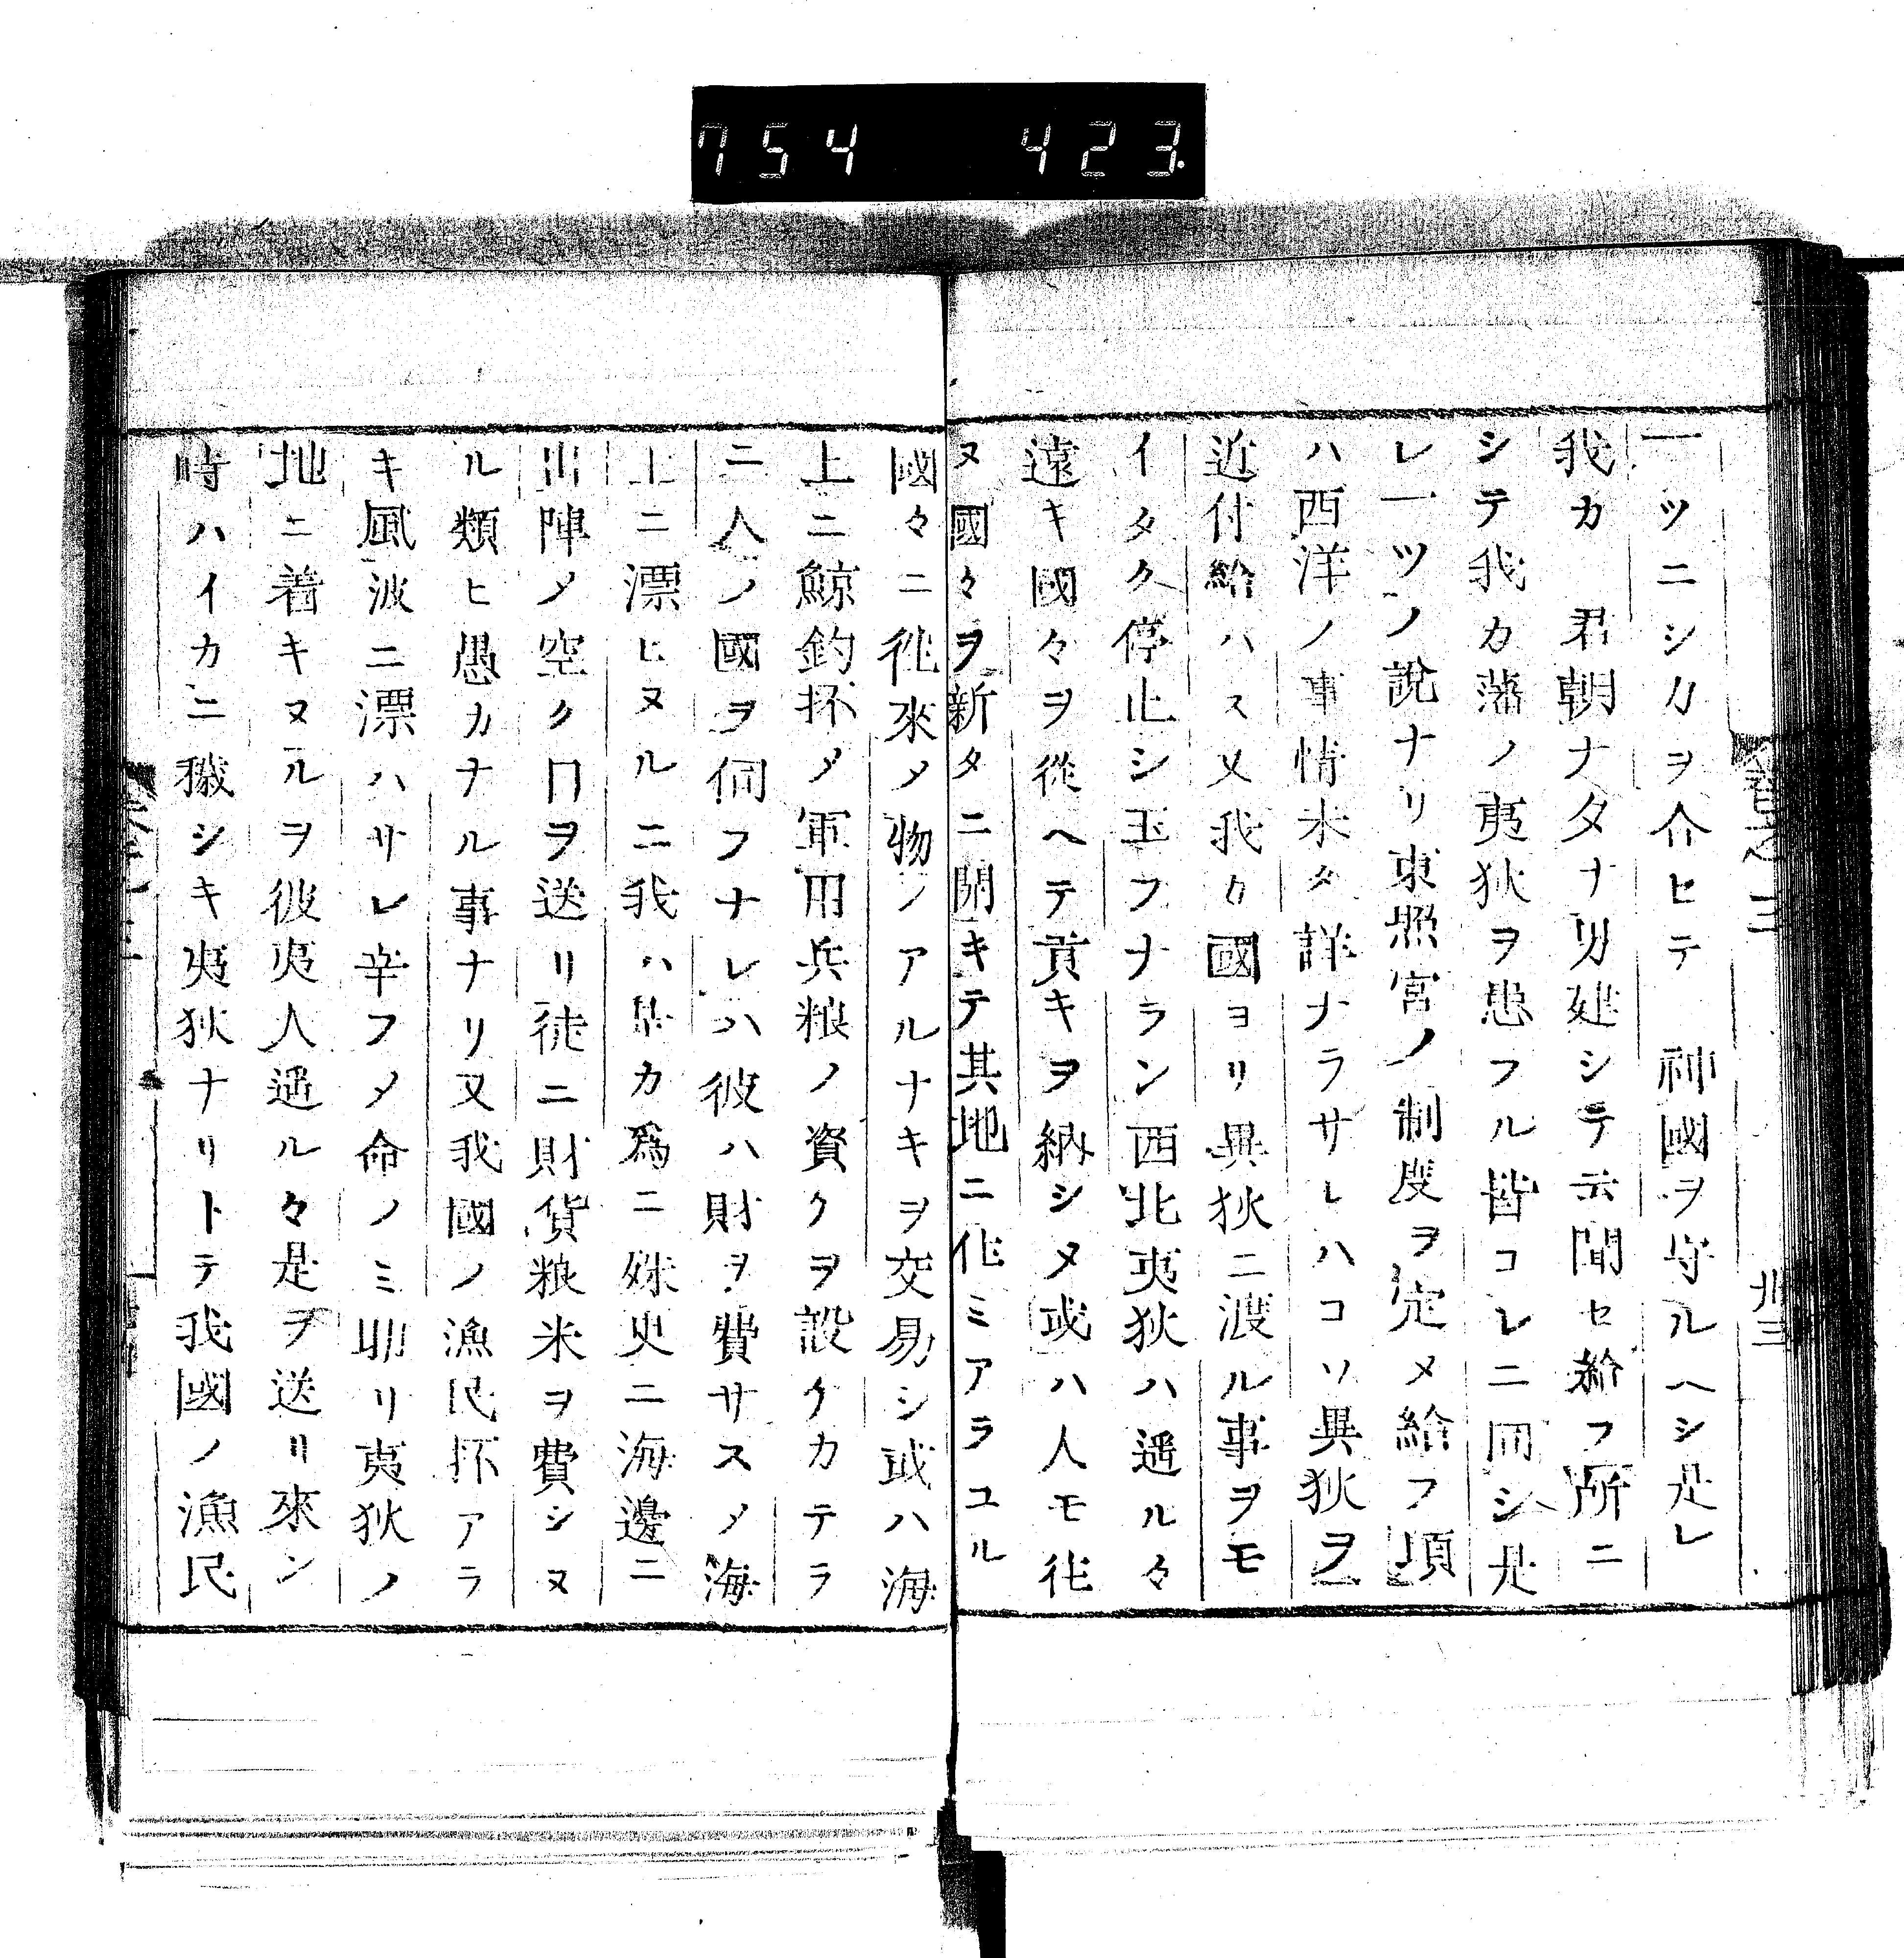 754 423
一ツニシカヲ介ヒテ　神國ヲ守ルヘシ是レ
我カ　君朝ナタナ男建シテ云聞セ給フ所ニ
シテ我カ藩ノ夷狄ヲ患フル皆コレニ同シ是
レ一ツノ說ナリ東照宮ノ制度ヲ定メ給フ頃
ハ西洋ノ事情未タ詳ナラサレハコソ異狄ヲ
近付給ハス又我カ國ヨリ異狄ニ渡ル事ヲモ
イタク停止シ玉フナラン西北夷狄ハ遥ル々
遠キ國々ヲ從ヘテ貢キヲ納シタ或ハ人モ住
ヌ國々ヲ新タニ開キテ其地ニ住ミアラユル
國々ニ徃來メ物ノアルナキヲ交易シ或ハ海
上ニ鯨釣抔メ軍用兵粮ノ資クヲ設ケカテラ
ニ人ノ國ヲ伺フナレハ彼ハ財ヲ費サスメ海
上ニ漂ヒヌルニ我ハ是カ爲ニ殊更ニ海邊ニ
出陣メ空ク日ヲ送リ徒ニ財貨粮米ヲ費シヌ
ル類ヒ愚カナル事ナリ又我國ノ漁民抔アラ
キ風波ニ漂ハサレ辛フメ命ノミ助リ夷狄ノ
地ニ着キヌルヲ彼夷人遥ル々是ヲ送リ來ン
時ハイカニ穢シキ夷狄ナリトテ我國ノ漁民